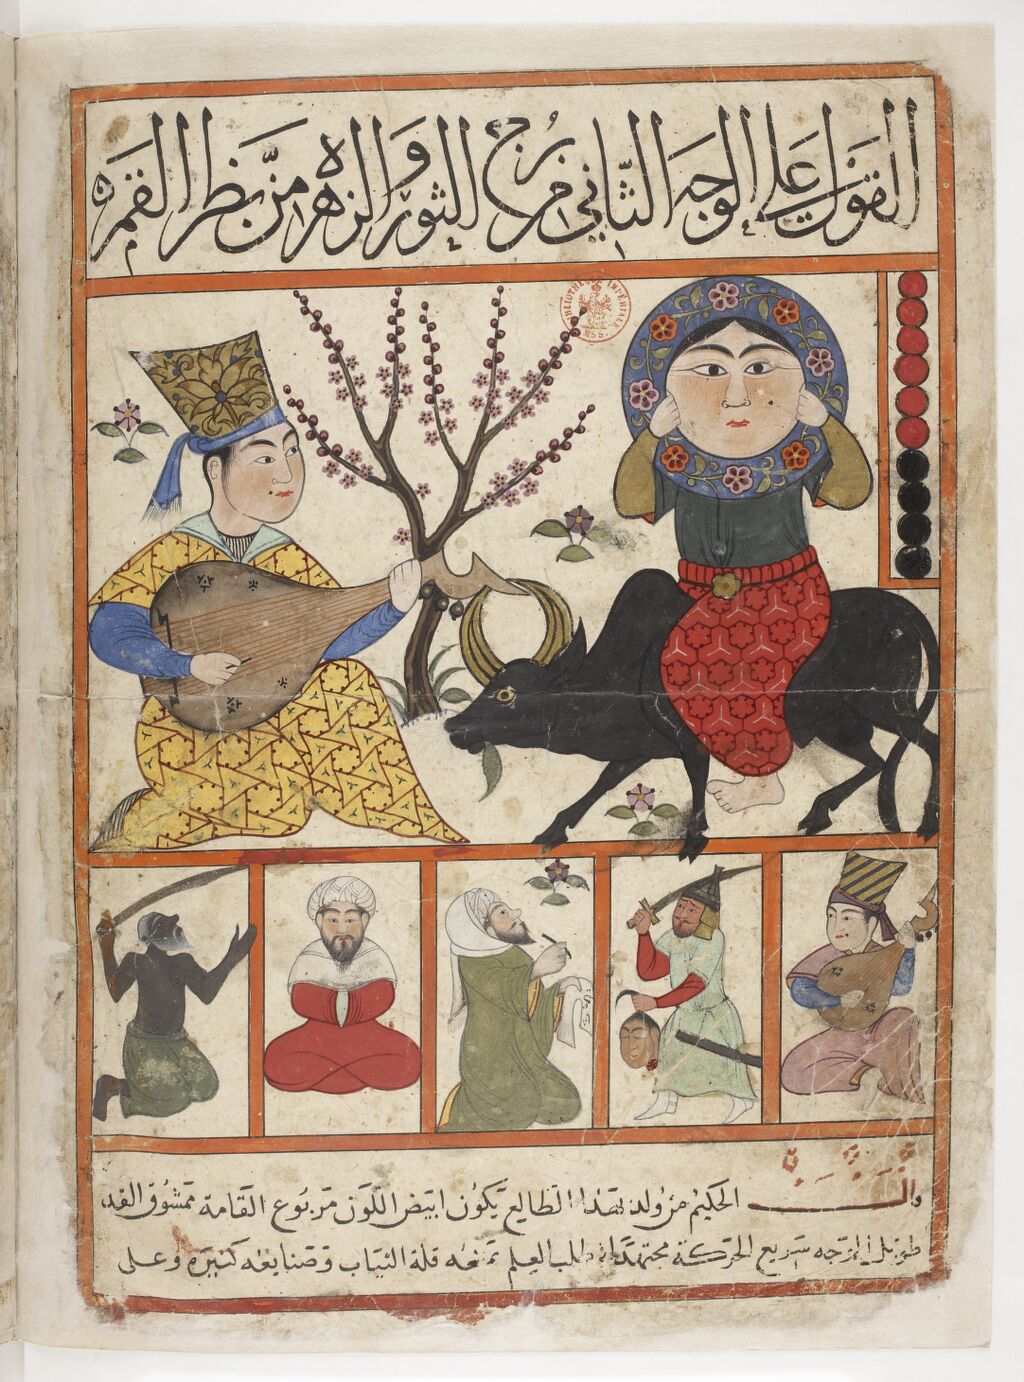 القول على الوجه الثاني من برج الثور والزهرة من نظر القمر
BIBLIOTHÈQUE IMPÉRIALE
قال الحكيم من ولد بهذا الطالع يكون ابيض اللون مربوع القامة ممشوق القد
طويل الوجه سريع الحركة مجتهدا في طلب العلم تمنعه قلة الثياب وصنايعه كثيرة وعلى